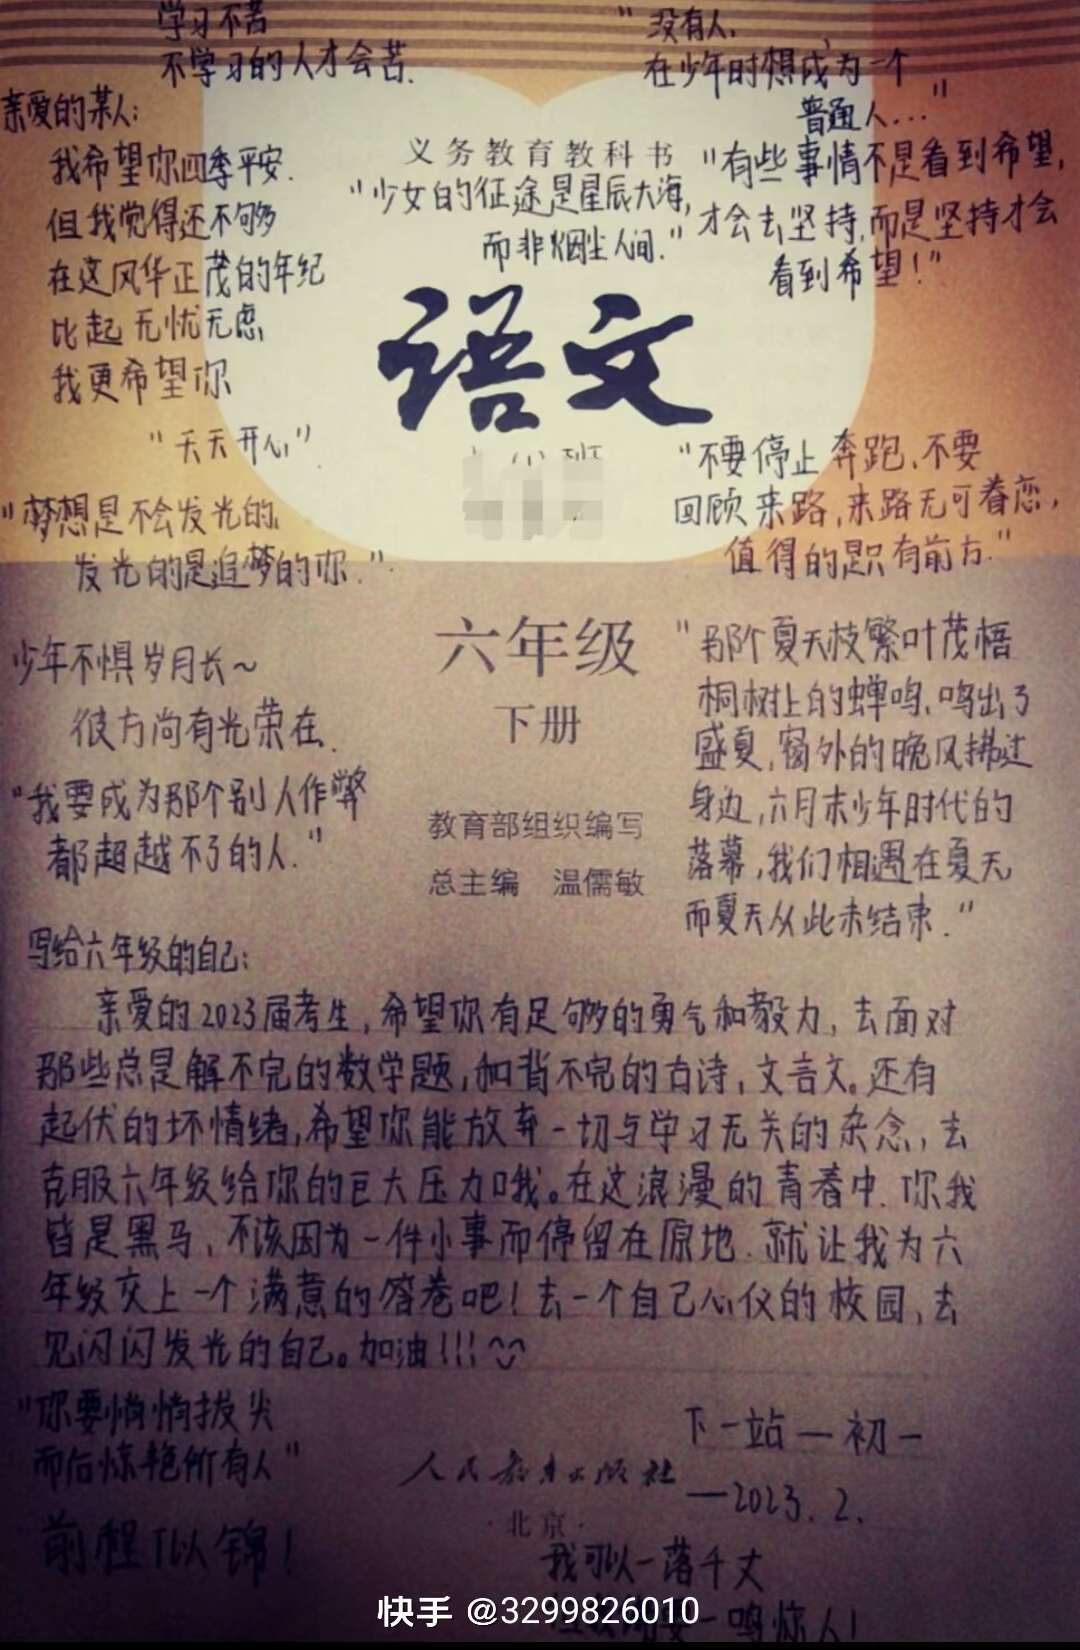 学习不苦
不学习的人才会苦.
"没有人,
在少年时想成为一个
普通人..."
亲爱的某人:
我希望你四季平安.
但我觉得还不够
在这风华正茂的年纪
比起无忧无虑
我更希望你
"天天开心".
义务教育教科书
"少女的征途是星辰大海,
而非烟尘人间."
"有些事情不是看到希望,
才会去坚持,而是坚持才会
看到希望!"
语文
(1)班
"梦想是不会发光的,
发光的是追梦的你.".
"不要停止奔跑、不要
回顾来路,来路无可眷恋,
值得的是只有前方."
少年不惧岁月长~
彼方尚有光荣在.
"我要成为那个别人作弊
都超越不了的人."
六年级
下册
教育部组织编写
总主编 温儒敏
"那个夏天枝繁叶茂梧
桐树上的蝉鸣、鸣出了
盛夏,窗外的晚风拂过
身边,六月末少年时代的
落幕,我们相遇在夏天
而夏天从此未结束."
写给六年级的自己:
亲爱的2023届考生,希望你有足够的勇气和毅力,去面对
那些总是解不完的数学题,和背不完的古诗,文言文。还有
起伏的坏情绪,希望你能放弃一切与学习无关的杂念,去
克服六年级给你的巨大压力哦。在这浪漫的青春中.你我
皆是黑马,不该因为一件小事而停留在原地.就让我为六
年级交上一个满意的答卷吧!去一个自己心仪的校园,去
见闪闪发光的自己。加油!!!
"你要悄悄拔尖
而后惊艳所有人"
前程似锦!
人民教育出版社
·北京·
下一站—初一
—2023.2.
我可以一落千丈
一鸣惊人!
快手 @3299826010